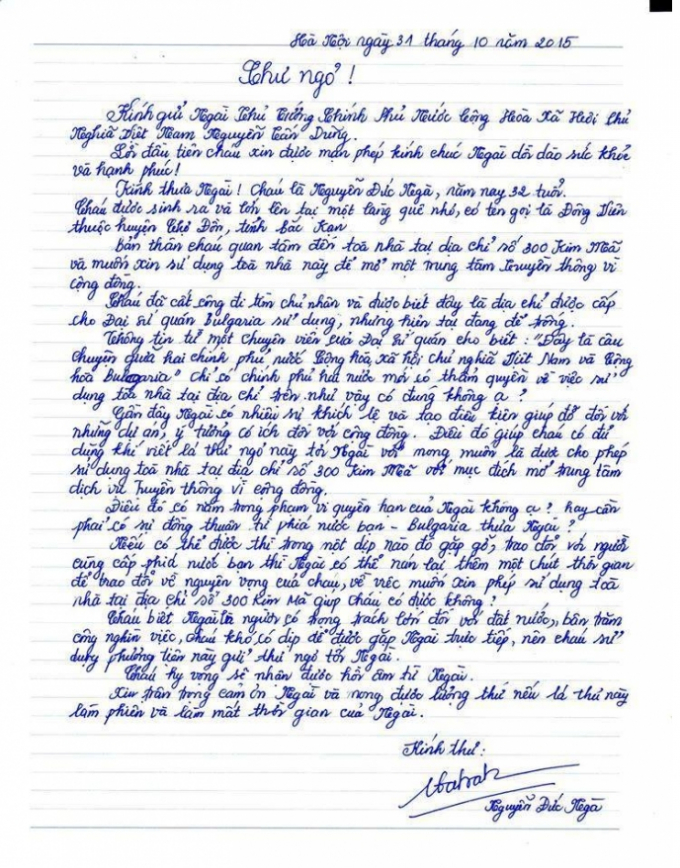 Hà Nội ngày 31 tháng 10 năm 2015
Thư ngỏ!
Kính gửi Ngài Thủ Tướng Chính Phủ Nước Cộng Hòa Xã Hội Chủ
Nghĩa Việt Nam Nguyễn Tấn Dũng.
Lời đầu tiên cháu xin được mạn phép kính chúc Ngài dồi dào sức khỏe
và hạnh phúc!
Kính thưa Ngài! Cháu là Nguyễn Đức Ngà, năm nay 32 tuổi.
Cháu được sinh ra và lớn lên tại một làng quê nhỏ, có tên gọi là Đông Viên
thuộc huyện Chợ Đồn, tỉnh Bắc Kạn
Bản thân cháu quan tâm đến toà nhà tại địa chỉ số 300 Kim Mã
và muốn xin sử dụng toà nhà này để mở một trung tâm truyền thông vì
cộng đồng.
Cháu đã cất công đi tìm chủ nhân và được biết đây là địa chỉ được cấp
cho Đại sứ quán Bulgaria sử dụng, nhưng hiện tại đang để trống.
Thông tin từ một chuyên viên của Đại sứ quán cho biết: "Đây là câu
chuyện giữa hai chính phủ nước Cộng hòa xã hội chủ nghĩa Việt Nam và Cộng
hòa Bulgaria" chỉ có chính phủ hai nước mới có thẩm quyền về việc sử
dụng toà nhà tại địa chỉ trên như vậy có đúng không ạ?
Gần đây Ngài có nhiều sự khích lệ và tạo điều kiện giúp đỡ đối với
những dự án, ý tưởng có ích đối với cộng đồng. Điều đó giúp cháu có đủ
dũng khí viết lá thư ngỏ này tới Ngài với mong muốn là được cho phép
sử dụng toà nhà tại địa chỉ số 300 Kim Mã với mục đích mở trung tâm
dịch vụ truyền thông vì cộng đồng.
Điều đó có nằm trong phạm vi quyền hạn của Ngài không ạ? hay cần
phải có sự đồng thuận từ phía nước bạn - Bulgaria thưa Ngài?
Nếu có thể được thì trong một dịp nào đó gặp gỡ, trao đổi với người
cùng cấp phía nước bạn thì Ngài có thể nán lại thêm một chút thời gian
để trao đổi về nguyện vọng của cháu, về việc muốn xin phép sử dụng toà
nhà tại địa chỉ số 300 Kim Mã giúp cháu có được không?
Cháu biết Ngài là người có trọng trách lớn đối với đất nước, bận trăm
công nghìn việc, cháu khó có dịp để được gặp Ngài trực tiếp, nên cháu sử
dụng phương tiện này gửi thư ngỏ tới Ngài.
Cháu hy vọng sẽ nhận được hồi âm từ Ngài.
Xin trân trọng cảm ơn Ngài và mong được lượng thứ nếu lá thư này
làm phiền và làm mất thời gian của Ngài.
Kính thư:
Nguyễn Đức Ngà